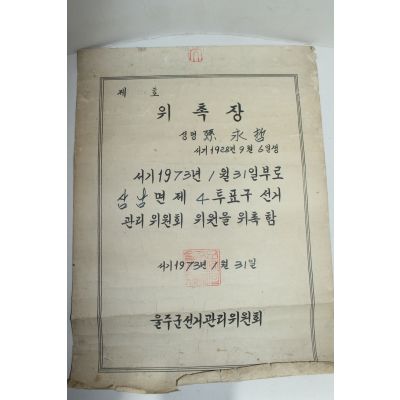 제 호
위촉장
성명 孫永哲
서기1928년9월6일생
서기1973년1월31일부로
삼남면 제4투표구 선거
관리위원회 위원을 위촉함
서기1973년1월31일
울주군선거관리위원회